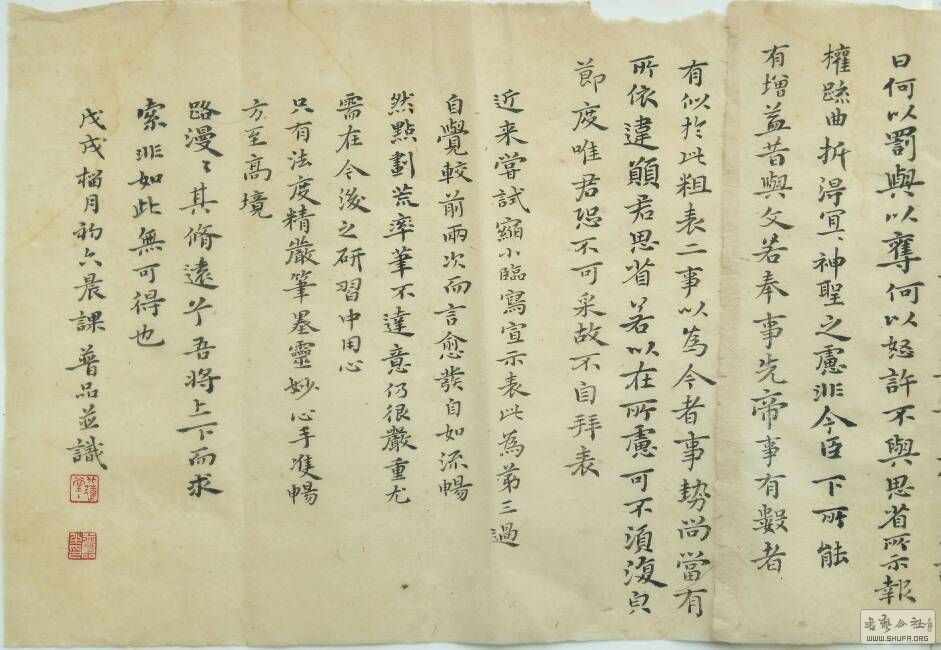 日何以罰與以奪何以怒許不與思省所示報
權疏曲折得宜宜神聖之慮非今臣下所能
有增益昔與文若奉事先帝事有數者
有似於此粗表二事以為今者事勢尚當有
所依違願君思省若以在所慮可不須復貞
節度唯君恐不可采故不自拜表
近来嘗試縮小臨寫宣示表此為第三過
自覺較前兩次而言愈發自如流暢
然點劃荒率筆不達意仍很嚴重尤
需在今後之研習中用心
只有法度精嚴筆墨靈妙心手雙暢
方至高境
路漫〻其脩遠兮吾將上下而求
索非如此無可得也
戊戌榴月初六晨課普品並識
WWW.SHUFA.ORG